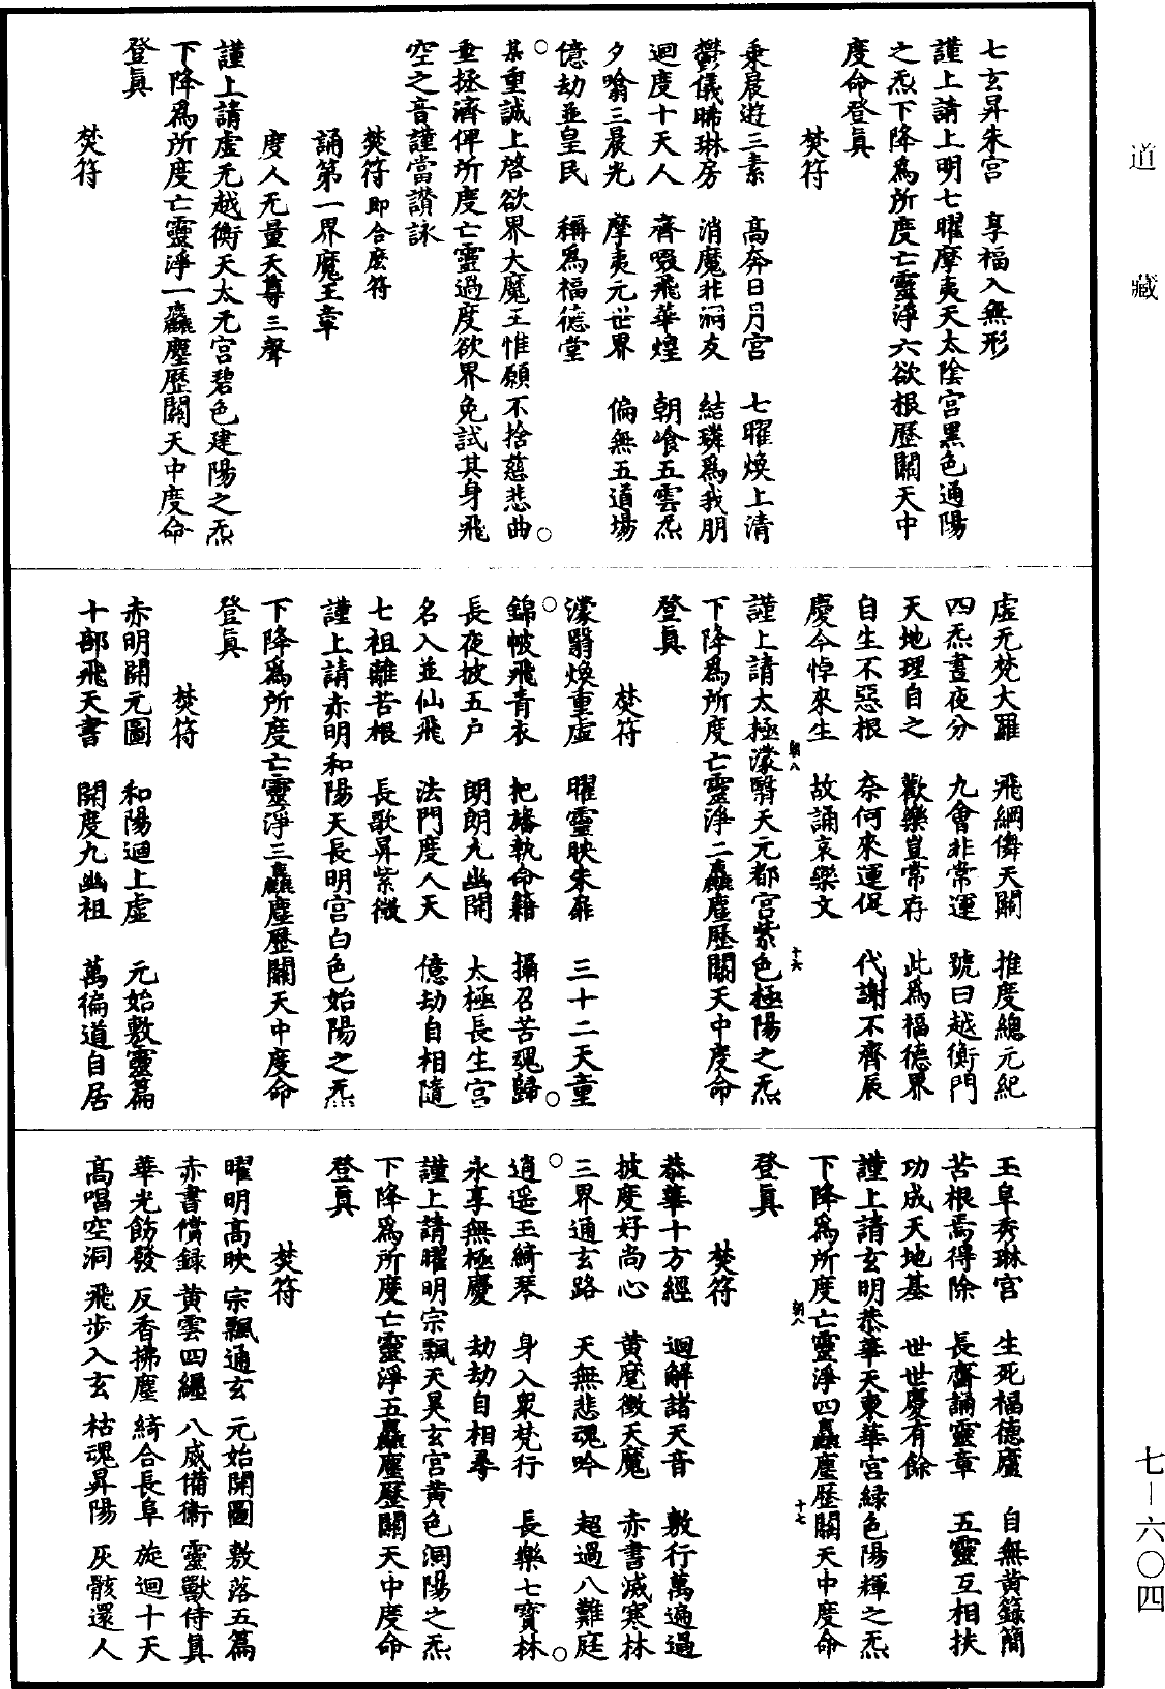 道藏
七玄昇朱宮　享福入無形
謹上請上明七曜摩夷天太陰宮黑色通陽
之炁下降爲所度亡靈淨六欲根歷關天中
度命登眞
焚符
乘晨遊三素　高奔日月宮　七曜煥上清
鬱儀晞琳房　消魔非洞友　結璘爲我朋
迴度十天人　齊啜飛華煌　朝飡五雲炁
夕噏三晨光　摩夷元世界　偏無五道場
億劫並皇民　稱爲福德堂
某重誠上啓欲界大魔王惟願不捨慈悲曲
垂拯濟俾所度亡靈過度欲界免試其身飛
空之音謹當讚詠
焚符即合麽符
誦第一界魔王章
度人无量天尊三聲
謹上請虛无越衡天太元宮碧色建陽之炁
下降爲所度亡靈淨一麤塵歷關天中度命
登眞
焚符
虛无梵大羅　飛綱僯天關　推度總元紀
四炁晝夜分　九會非常運　號曰越衡門
天地理自之　歡樂豈常存　此爲福德界
自生不惡根　奈何來運促　代謝不齊辰
慶今悼來生　故誦哀樂文
謹上請太極濛翳天元都宮紫色極陽之炁
下降爲所度亡靈淨二麤塵歷關天中度命
登眞
焚符
濛翳煥重虛　曜靈映朱扉　三十二天童
錦帔飛青衣　把旛執命籍　攝召苦魂歸
長夜披五户　朗朗九幽開　太極長生宮
名入並仙飛　法門度人天　億劫自相隨
七祖離苦根　長歌昇紫微
謹上請赤明和陽天長明宮白色始陽之炁
下降爲所度亡靈淨三麤塵歷關天中度命
登眞
焚符
赤明開元圖　和陽迴上虛　元始敷靈篇
十部飛天書　開度九幽祖　萬徧道自居
玉阜秀琳宮　生死福德廬　自無黄籙簡
苦根焉得除　長齋誦靈章　五靈互相扶
功成天地基　世世慶有餘
謹上請玄明恭華天東華宮緑色陽輝之炁
下降爲所度亡靈淨四麤塵歷關天中度命
登眞
焚符
恭華十方經　迴解諸天音　敷行萬遍過
披度好尚心　黄麾徵天魔　赤書滅寒林
三界通玄路　天無悲魂吟　超過八難庭
逍遥玉綺琴　身入衆梵行　長樂七寶林
永享無極慶　劫劫自相尋
謹上請曜明宗飄天昊玄宮黄色洞陽之炁
下降爲所度亡靈淨五麤塵歷關天中度命
登眞
焚符
曜明高映　宗飄通玄　元始開圖　敷落五篇
赤書償録　黄雲四纒　八威備衛　靈獸侍眞
華光飭發　反香拂塵　綺合長阜　旋迴十天
高唱空洞　飛步入玄　枯魂昇陽　灰骸還人
七—六〇四